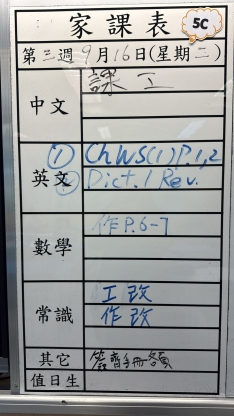 家課表 5C
第三週9月16日(星期二)
中文 課工
英文 ① Ch WS(1) P.1,2
② Dict. 1 Rev.
數學 作 P.6-7
常識 工改
作改
其它 簽齊手冊
值日生